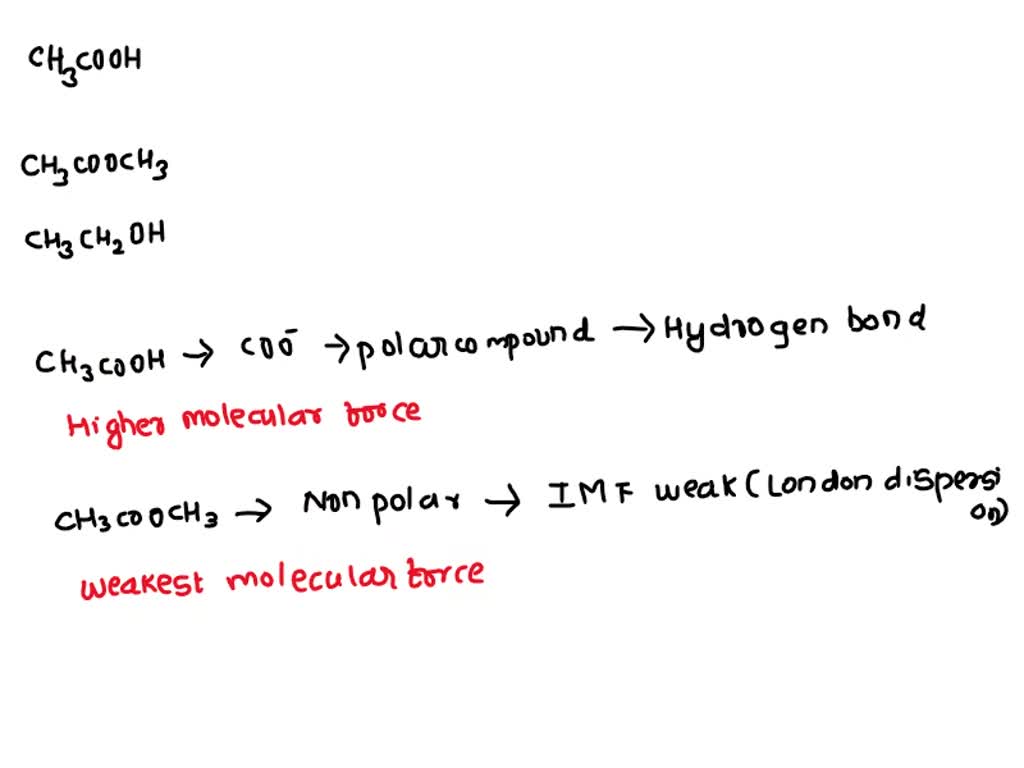 CH₃COOH
CH₃COOCH₃
CH₃CH₂OH
CH₃COOH → COO⁻ → polar compound → Hydrogen bond
Higher molecular force
CH₃COOCH₃ → Non polar → IMF weak (London dispersi
on)
weakest molecular force